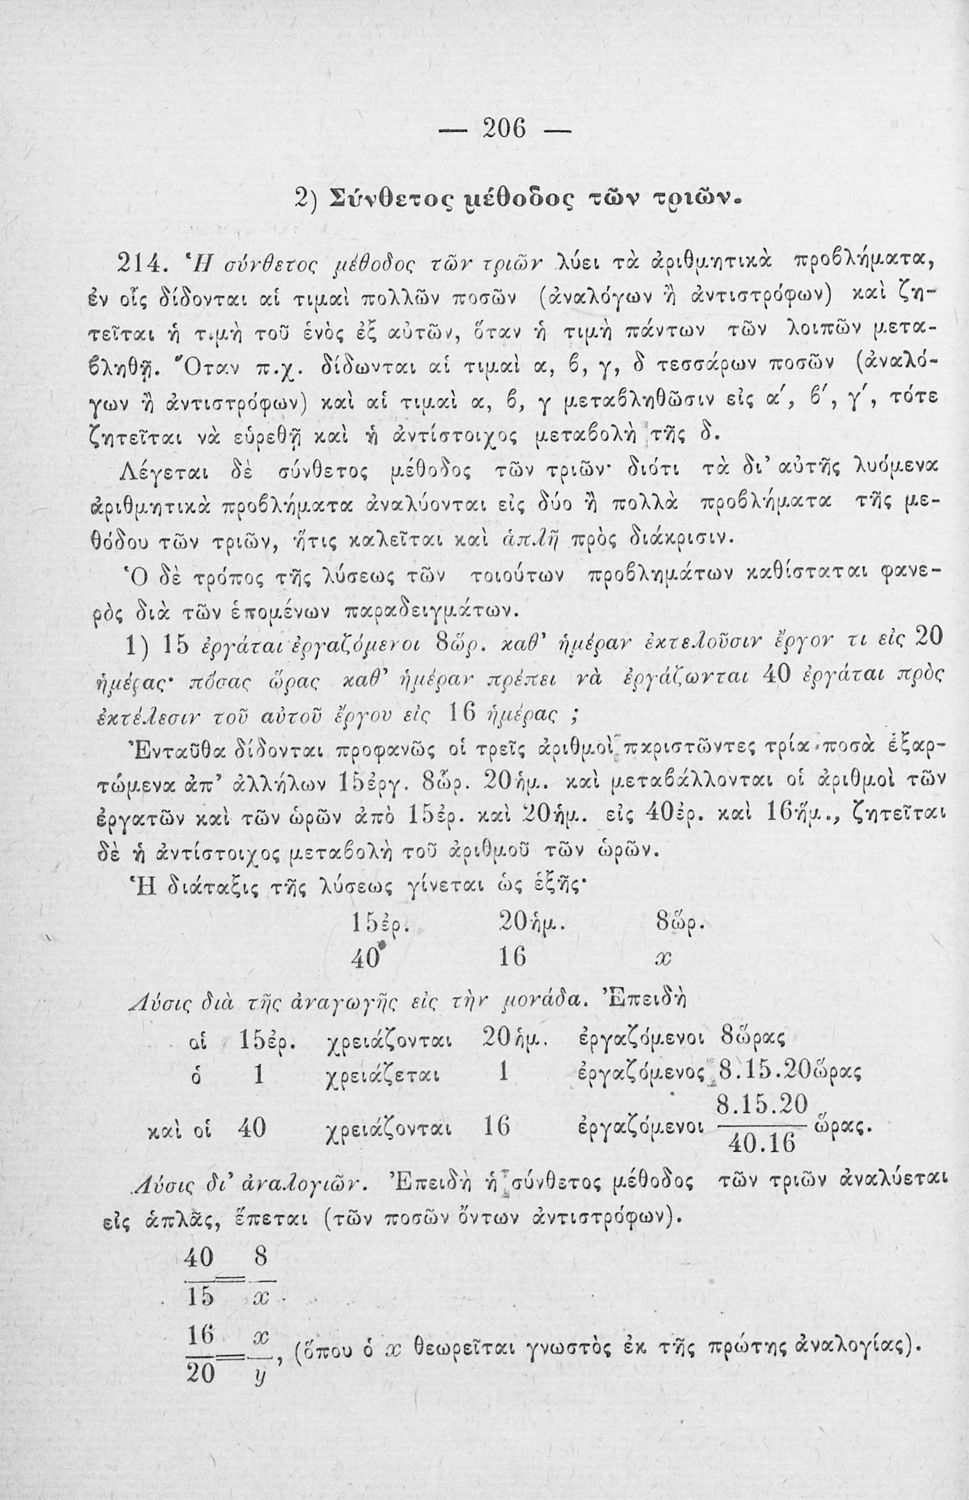 — 206 —
2) Σύνθετος μέθοδος τῶν τριῶν.
214. Ἡ σύνθετος μέθοδος τῶν τριῶν λύει τὰ ἀριθμητικὰ προβλήματα,
ἐν οἷς δίδονται αἱ τιμαὶ πολλῶν ποσῶν (ἀναλόγων ἢ ἀντιστρόφων) καὶ ζη-
τεῖται ἡ τιμὴ τοῦ ἑνὸς ἐξ αὐτῶν, ὅταν ἡ τιμὴ πάντων τῶν λοιπῶν μετα-
βληθῇ. Ὅταν π.χ. δίδωνται αἱ τιμαὶ α, β, γ, δ τεσσάρων ποσῶν (ἀναλό-
γων ἢ ἀντιστρόφων) καὶ αἱ τιμαὶ α, β, γ μεταβληθῶσιν εἰς α΄, β΄, γ΄, τότε
ζητεῖται νὰ εὑρεθῇ καὶ ἡ ἀντίστοιχος μεταβολὴ τῆς δ.
Λέγεται δὲ σύνθετος μέθοδος τῶν τριῶν· διότι τὰ δι’ αὐτῆς λυόμενα
ἀριθμητικὰ προβλήματα ἀναλύονται εἰς δύο ἢ πολλὰ προβλήματα τῆς με-
θόδου τῶν τριῶν, ἥτις καλεῖται καὶ ἁπλῆ πρὸς διάκρισιν.
Ὁ δὲ τρόπος τῆς λύσεως τῶν τοιούτων προβλημάτων καθίσταται φανε-
ρὸς διὰ τῶν ἑπομένων παραδειγμάτων.
1) 15 ἐργάται ἐργαζόμενοι 8ὥρ. καθ’ ἡμέραν ἐκτελοῦσιν ἔργον τι εἰς 20
ἡμέρας· πόσας ὥρας καθ’ ἡμέραν πρέπει νὰ ἐργάζωνται 40 ἐργάται πρὸς
ἐκτέλεσιν τοῦ αὐτοῦ ἔργου εἰς 16 ἡμέρας ;
Ἐνταῦθα δίδονται προφανῶς οἱ τρεῖς ἀριθμοὶ παριστῶντες τρία ποσὰ ἐξαρ-
τώμενα ἀπ’ ἀλλήλων 15ἐργ. 8ὧρ. 20ἡμ. καὶ μεταβάλλονται οἱ ἀριθμοὶ τῶν
ἐργατῶν καὶ τῶν ὡρῶν ἀπὸ 15ἐρ. καὶ 20ἡμ. εἰς 40ἐρ. καὶ 16ἡμ., ζητεῖται
δὲ ἡ ἀντίστοιχος μεταβολὴ τοῦ ἀριθμοῦ τῶν ὡρῶν.
Ἡ διάταξις τῆς λύσεως γίνεται ὡς ἑξῆς·
15ἐρ. 20ἡμ. 8ὥρ.
40 16 x
Λύσις διὰ τῆς ἀναγωγῆς εἰς τὴν μονάδα. Ἐπειδὴ
οἱ 15ἐρ. χρειάζονται 20ἡμ. ἐργαζόμενοι 8ὥρας
ὁ 1 χρειάζεται 1 ἐργαζόμενος 8.15.20ὥρας
καὶ οἱ 40 χρειάζονται 16 ἐργαζόμενοι 8.15.20/40.16 ὥρας.
Λύσις δι’ ἀναλογιῶν. Ἐπειδὴ ἡ σύνθετος μέθοδος τῶν τριῶν ἀναλύεται
εἰς ἁπλᾶς, ἕπεται (τῶν ποσῶν ὄντων ἀντιστρόφων).
40/15=8/x
16/20=x/y, (ὅπου ὁ x θεωρεῖται γνωστὸς ἐκ τῆς πρώτης ἀναλογίας).